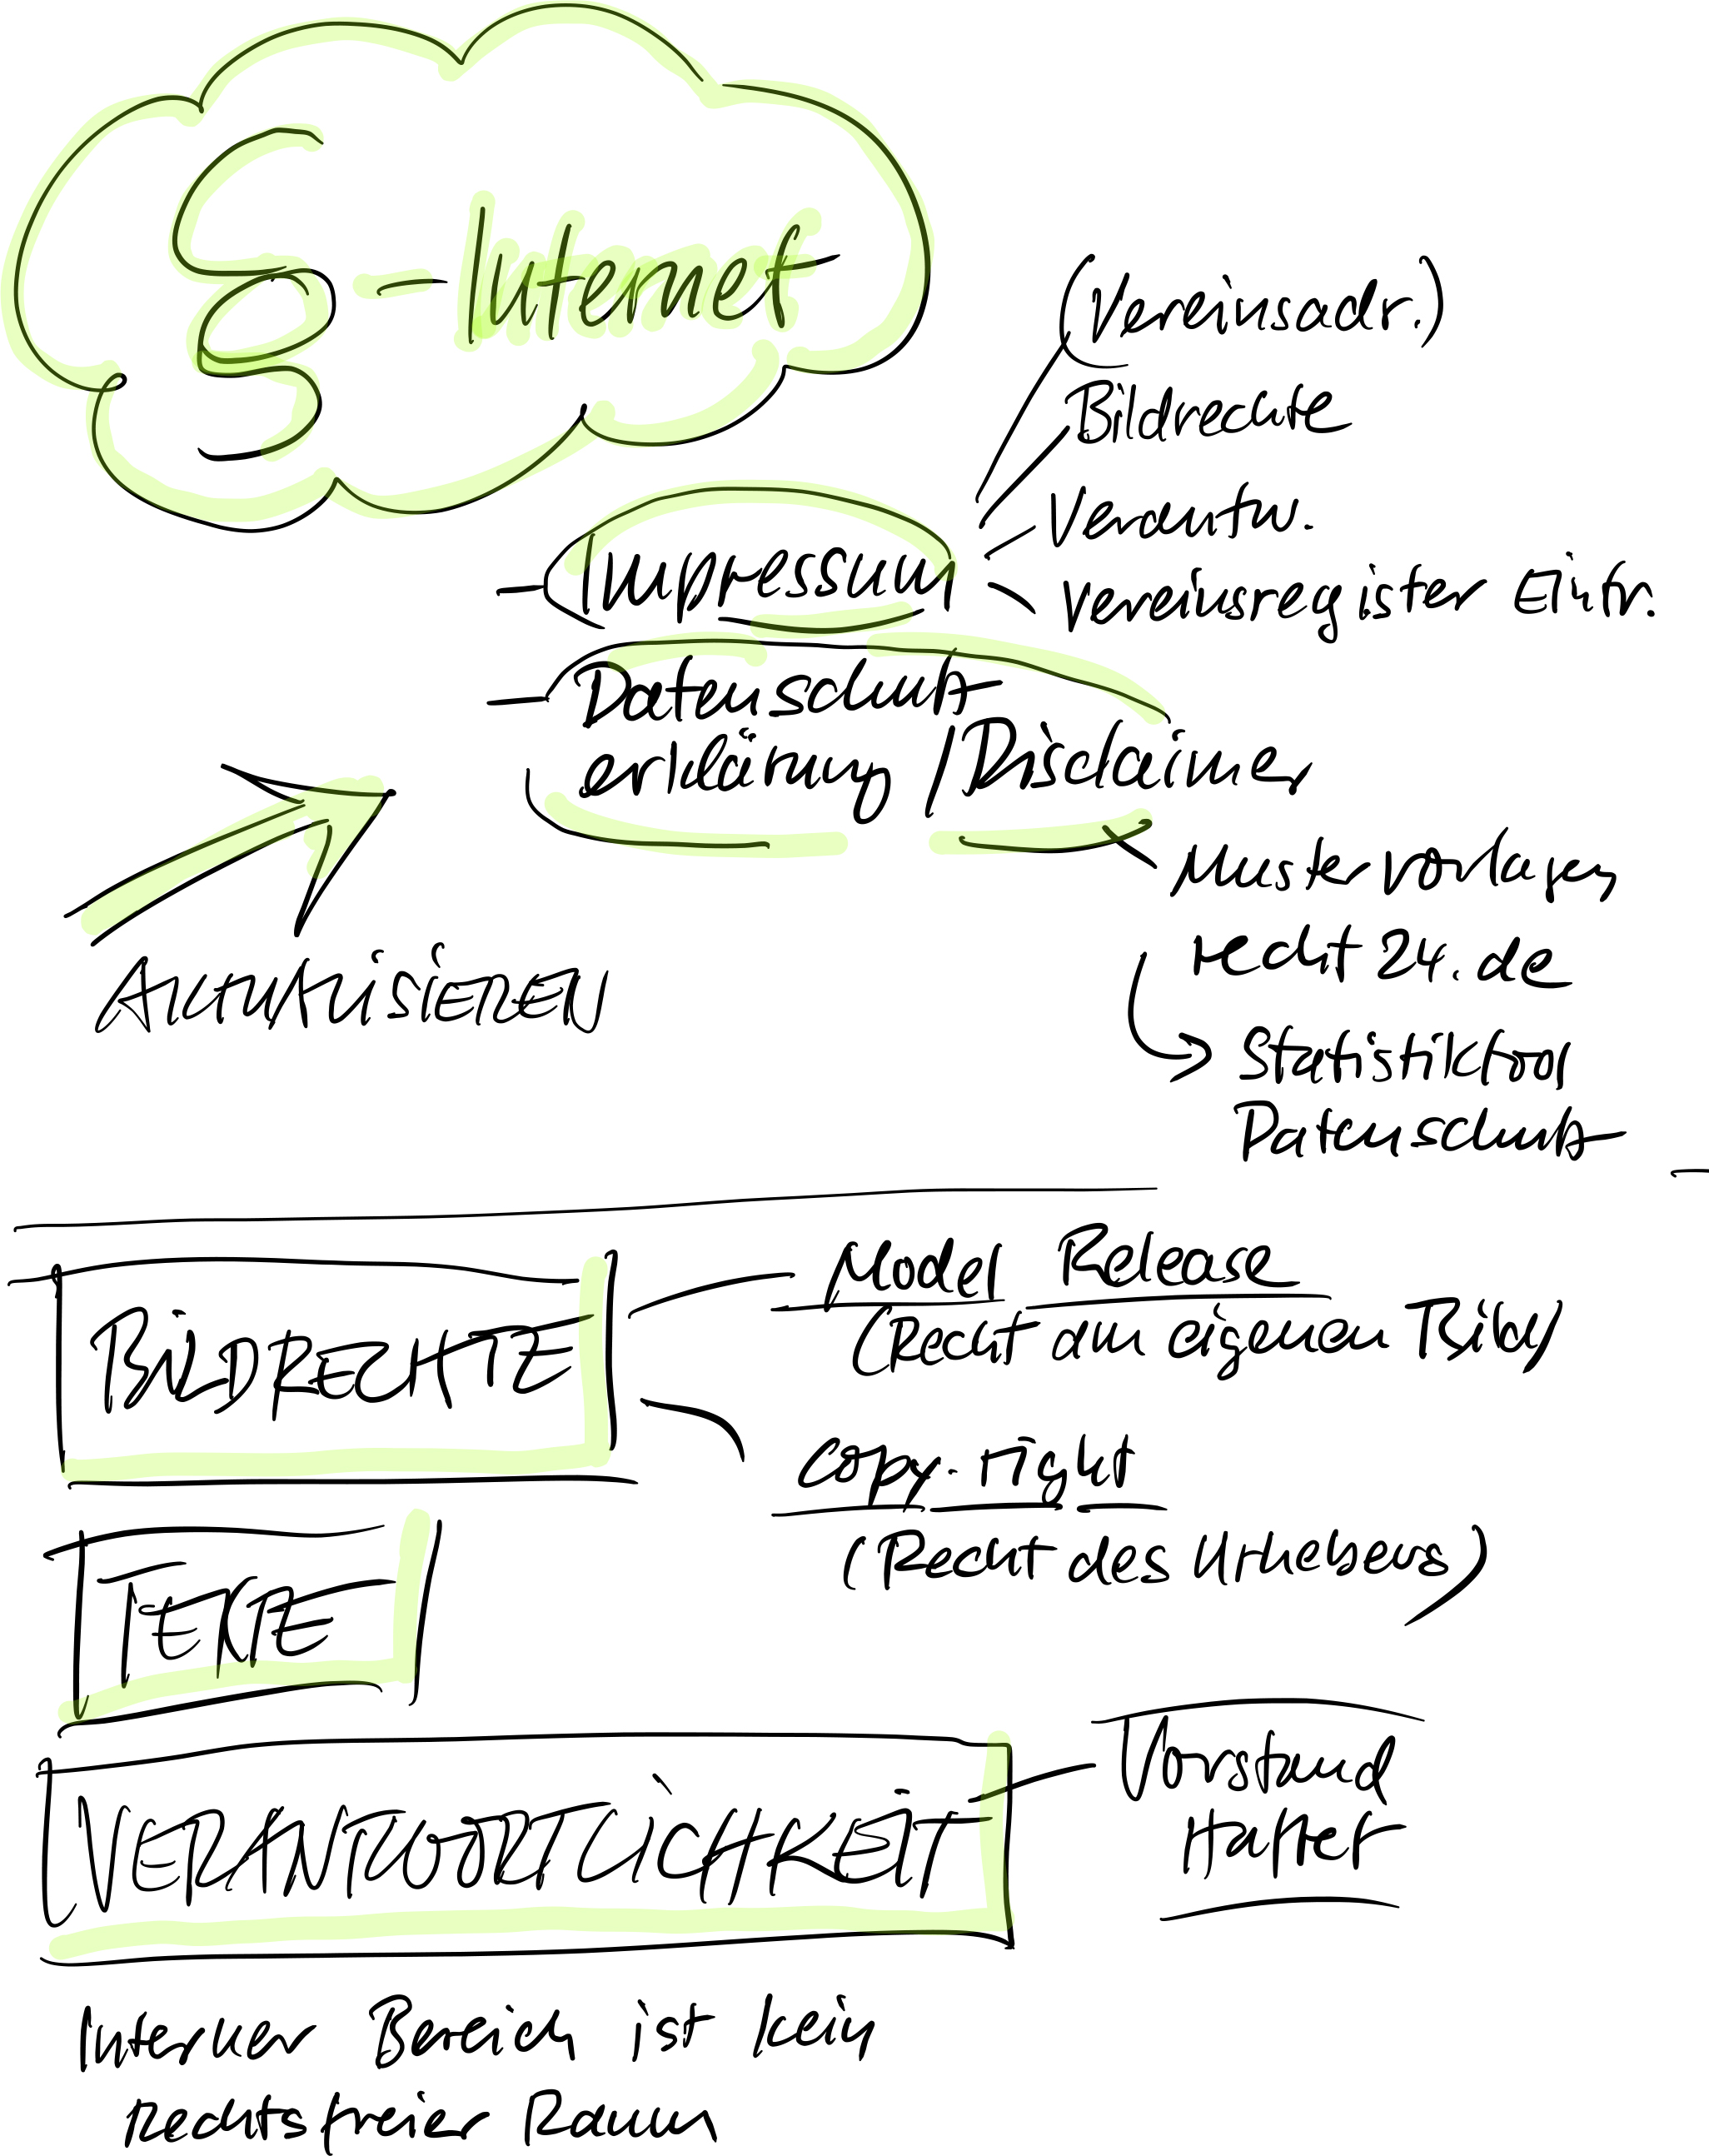 § - Internet
(Vereinsadr.)
Bildrechte
Verantw.
Vereinsregister Eintr.
- Impressum
- Datenschutz
erklärung / Disclaimer
Aktualisieren
Mustervorlagen
recht24.de
Statistiktool
Datenschutz
BILDRECHTE
Model Release
(Recht am eigenen Bild)
copy-right
(Recht des Urhebers)
TEXTE
VERANTWORTLICHKEIT
Vorstand
Haftet
Interner Bereich ist kein
rechtsfreier Raum